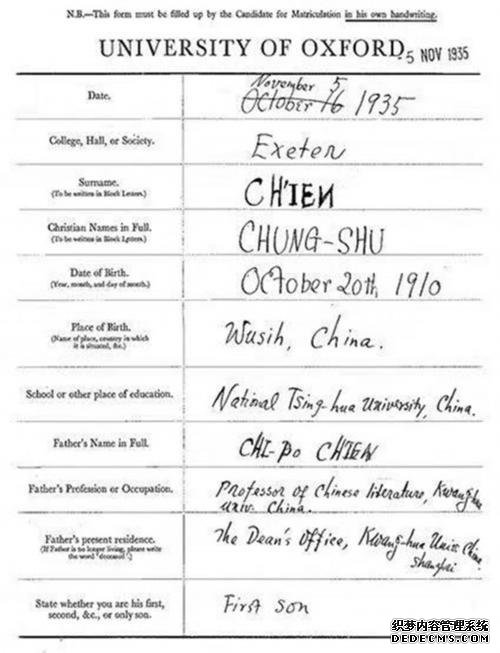 N.B.—This form must be filled up by the Candidate for Matriculation in his own handwriting.
UNIVERSITY OF OXFORD.
5 NOV 1935
Date.
November 5
October 16 1935
College, Hall, or Society.
Exeter
Surname.
(To be written in Block Letters.)
CH'IEN
Christian Names in Full.
(To be written in Block Letters.)
CHUNG-SHU
Date of Birth.
(Year, month, and day of month.)
October 20th 1910
Place of Birth.
(Name of place, country in which
it is situated, &c.)
Wusih, China.
School or other place of education.
National Tsing-hua University, China.
Father's Name in Full.
CHI-Po CH'IEN
Father's Profession or Occupation.
Professor of Chinese literature, Kwang-hua
Univ. China.
Father's present residence.
(If Father is no longer living, please write
the word "deceased".)
The Dean's Office, Kwang-hua Univ. China
Shanghai
State whether you are his first,
second, &c., or only son.
First son
织梦内容管理系统
DEDECMS.COM